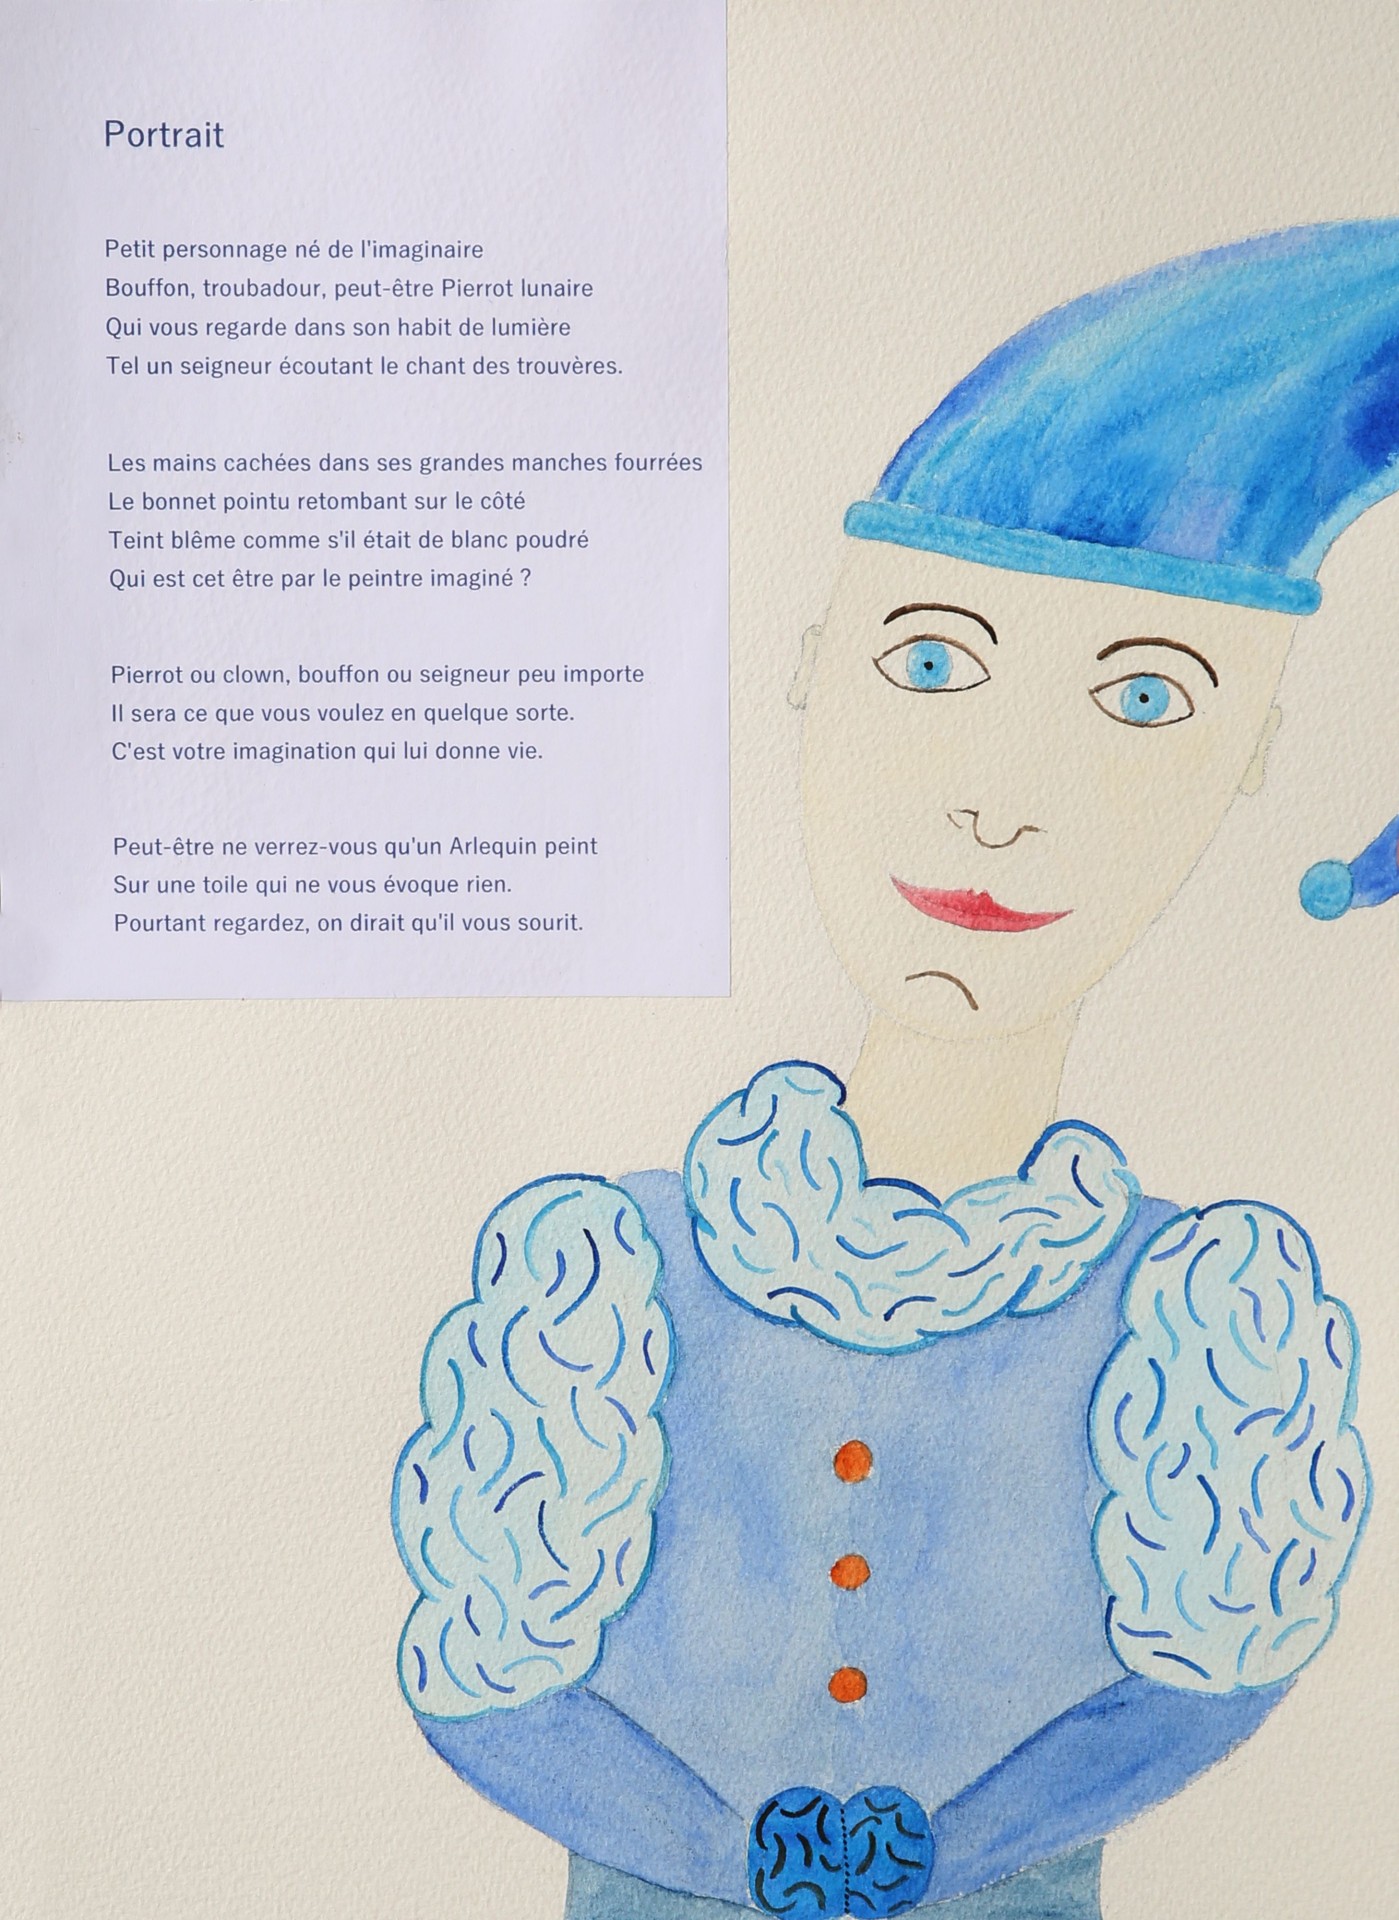 Portrait
Petit personnage né de l'imaginaire
Bouffon, troubadour, peut-être Pierrot lunaire
Qui vous regarde dans son habit de lumière
Tel un seigneur écoutant le chant des trouvères.
Les mains cachées dans ses grandes manches fourrées
Le bonnet pointu retombant sur le côté
Teint blême comme s'il était de blanc poudré
Qui est cet être par le peintre imaginé ?
Pierrot ou clown, bouffon ou seigneur peu importe
Il sera ce que vous voulez en quelque sorte.
C'est votre imagination qui lui donne vie.
Peut-être ne verrez-vous qu'un Arlequin peint
Sur une toile qui ne vous évoque rien.
Pourtant regardez, on dirait qu'il vous sourit.